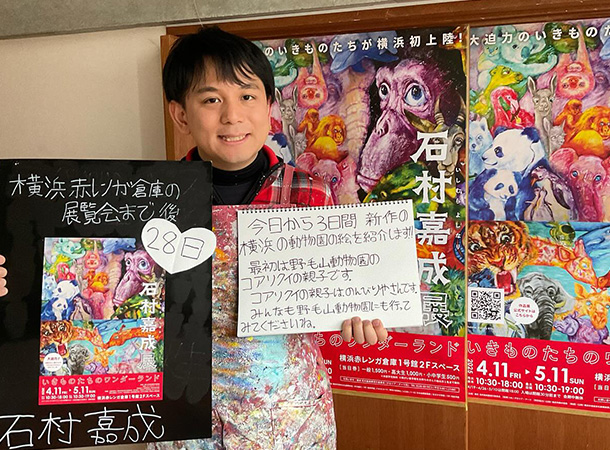 横浜赤レンガ倉庫の
展覧会まで後
28日
石村嘉成展
いきものたちのワンダーランド
4.11 FRI 5.11 SUN
10:30-18:00 10:30-19:00
石村嘉成
今日から3日間 新作の
横浜の動物園の絵を紹介します!!
最初は野毛山動物園の
コアリクイの親子です
コアリクイの親子はのんびりやさんです。
みんなも野毛山動物園にも行って
みてくださいね。
のいきものたちが横浜初上陸!
石村嘉成展
いしむらよしなり
たちのワンダーランド
横浜赤レンガ倉庫1号館2Fスペース
大迫力のいきもの
いきものたちのワ
4.11 FRI 5.11 SUN
10:30-18:00 10:30-19:00
横浜赤